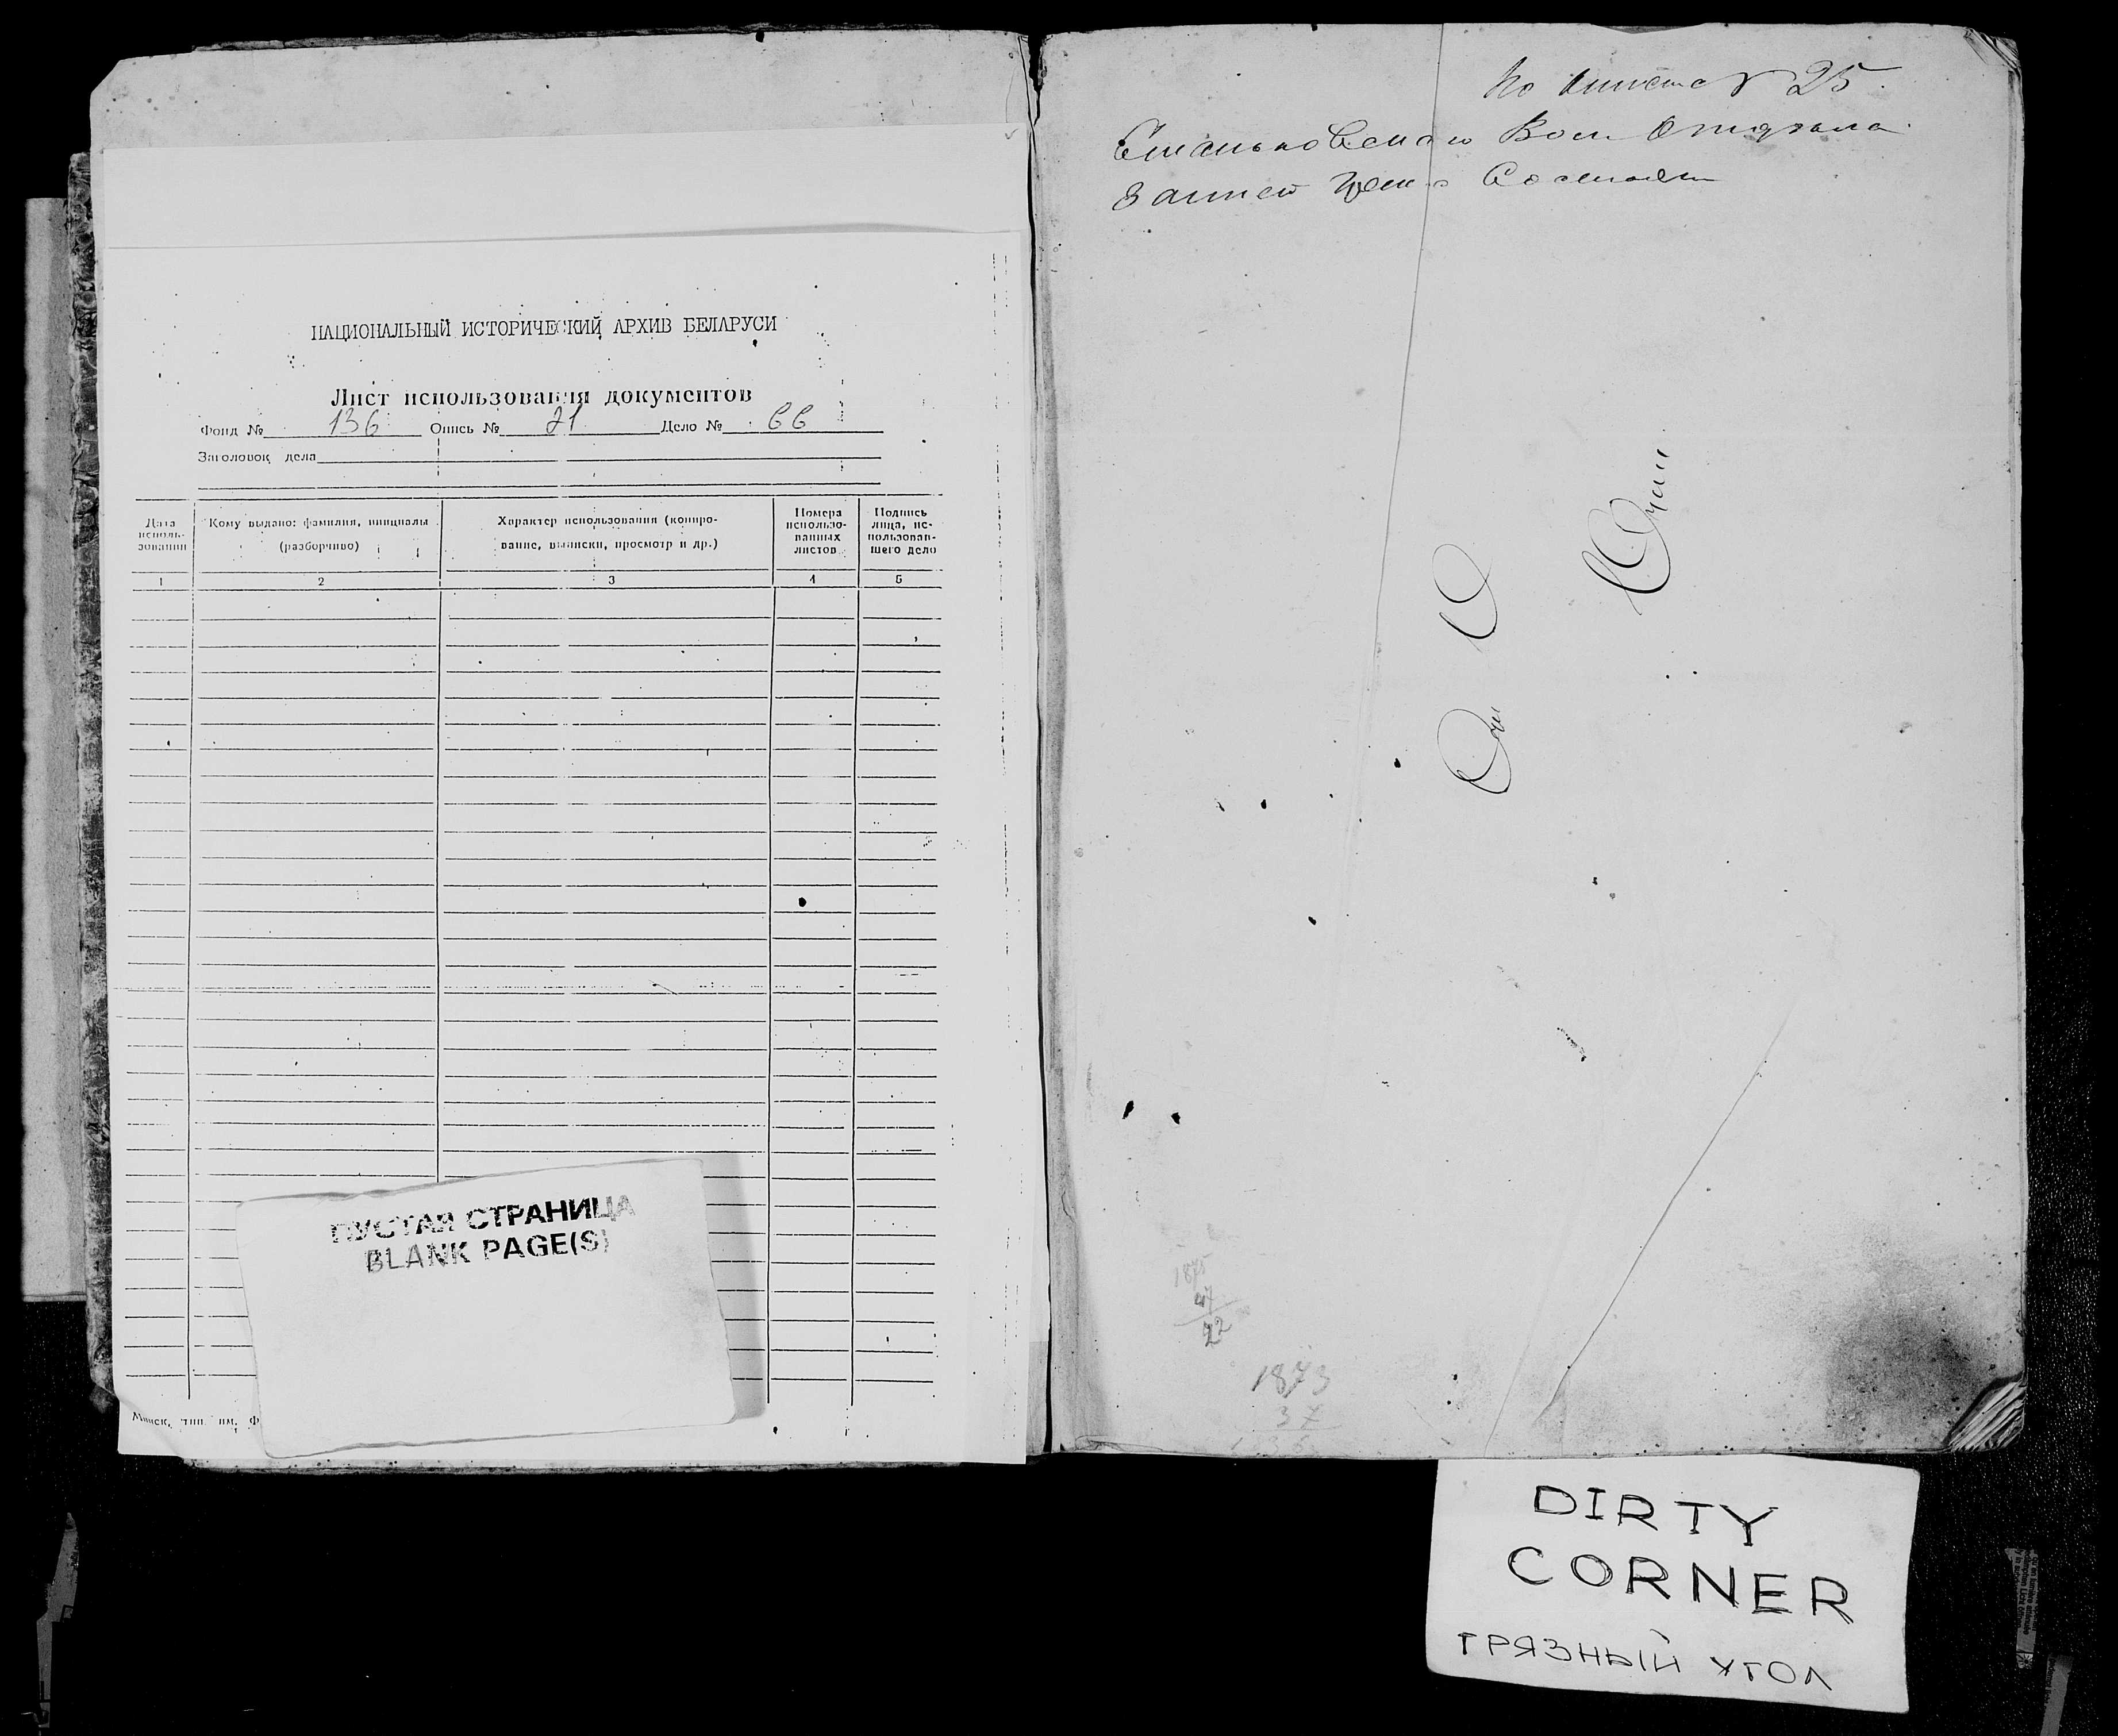 НАЦИОНАЛЬНЫЙ ИСТОРИЧЕСКИЙ АРХИВ БЕЛАРУСИ
Лист использования документов
Фонд № 136 Опись № 21 Дело № 66
Заголовок дела
Дата исполь-зования
Кому выдано: фамилия, инициалы (разборчиво)
Характер использования (копиро-вание, выписки, просмотр и др.)
Номера использо-ванных листов
Подпись лица, ис-пользовав-шего дело
1 2 3 4 5
ПУСТАЯ СТРАНИЦА
BLANK PAGE(S)
Минск, тип. им. Ф
По 25.
1875
47
22
1873
37
DIRTY
CORNER
ГРЯЗНЫЙ УГОЛ